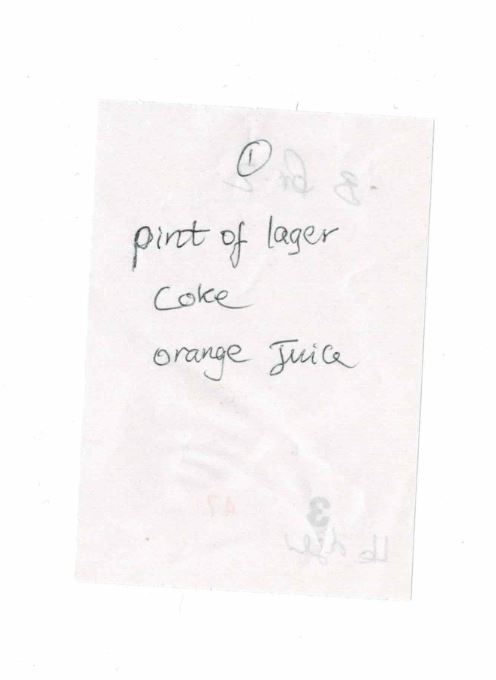 ①
pint of lager
Coke
orange Juice
3
47